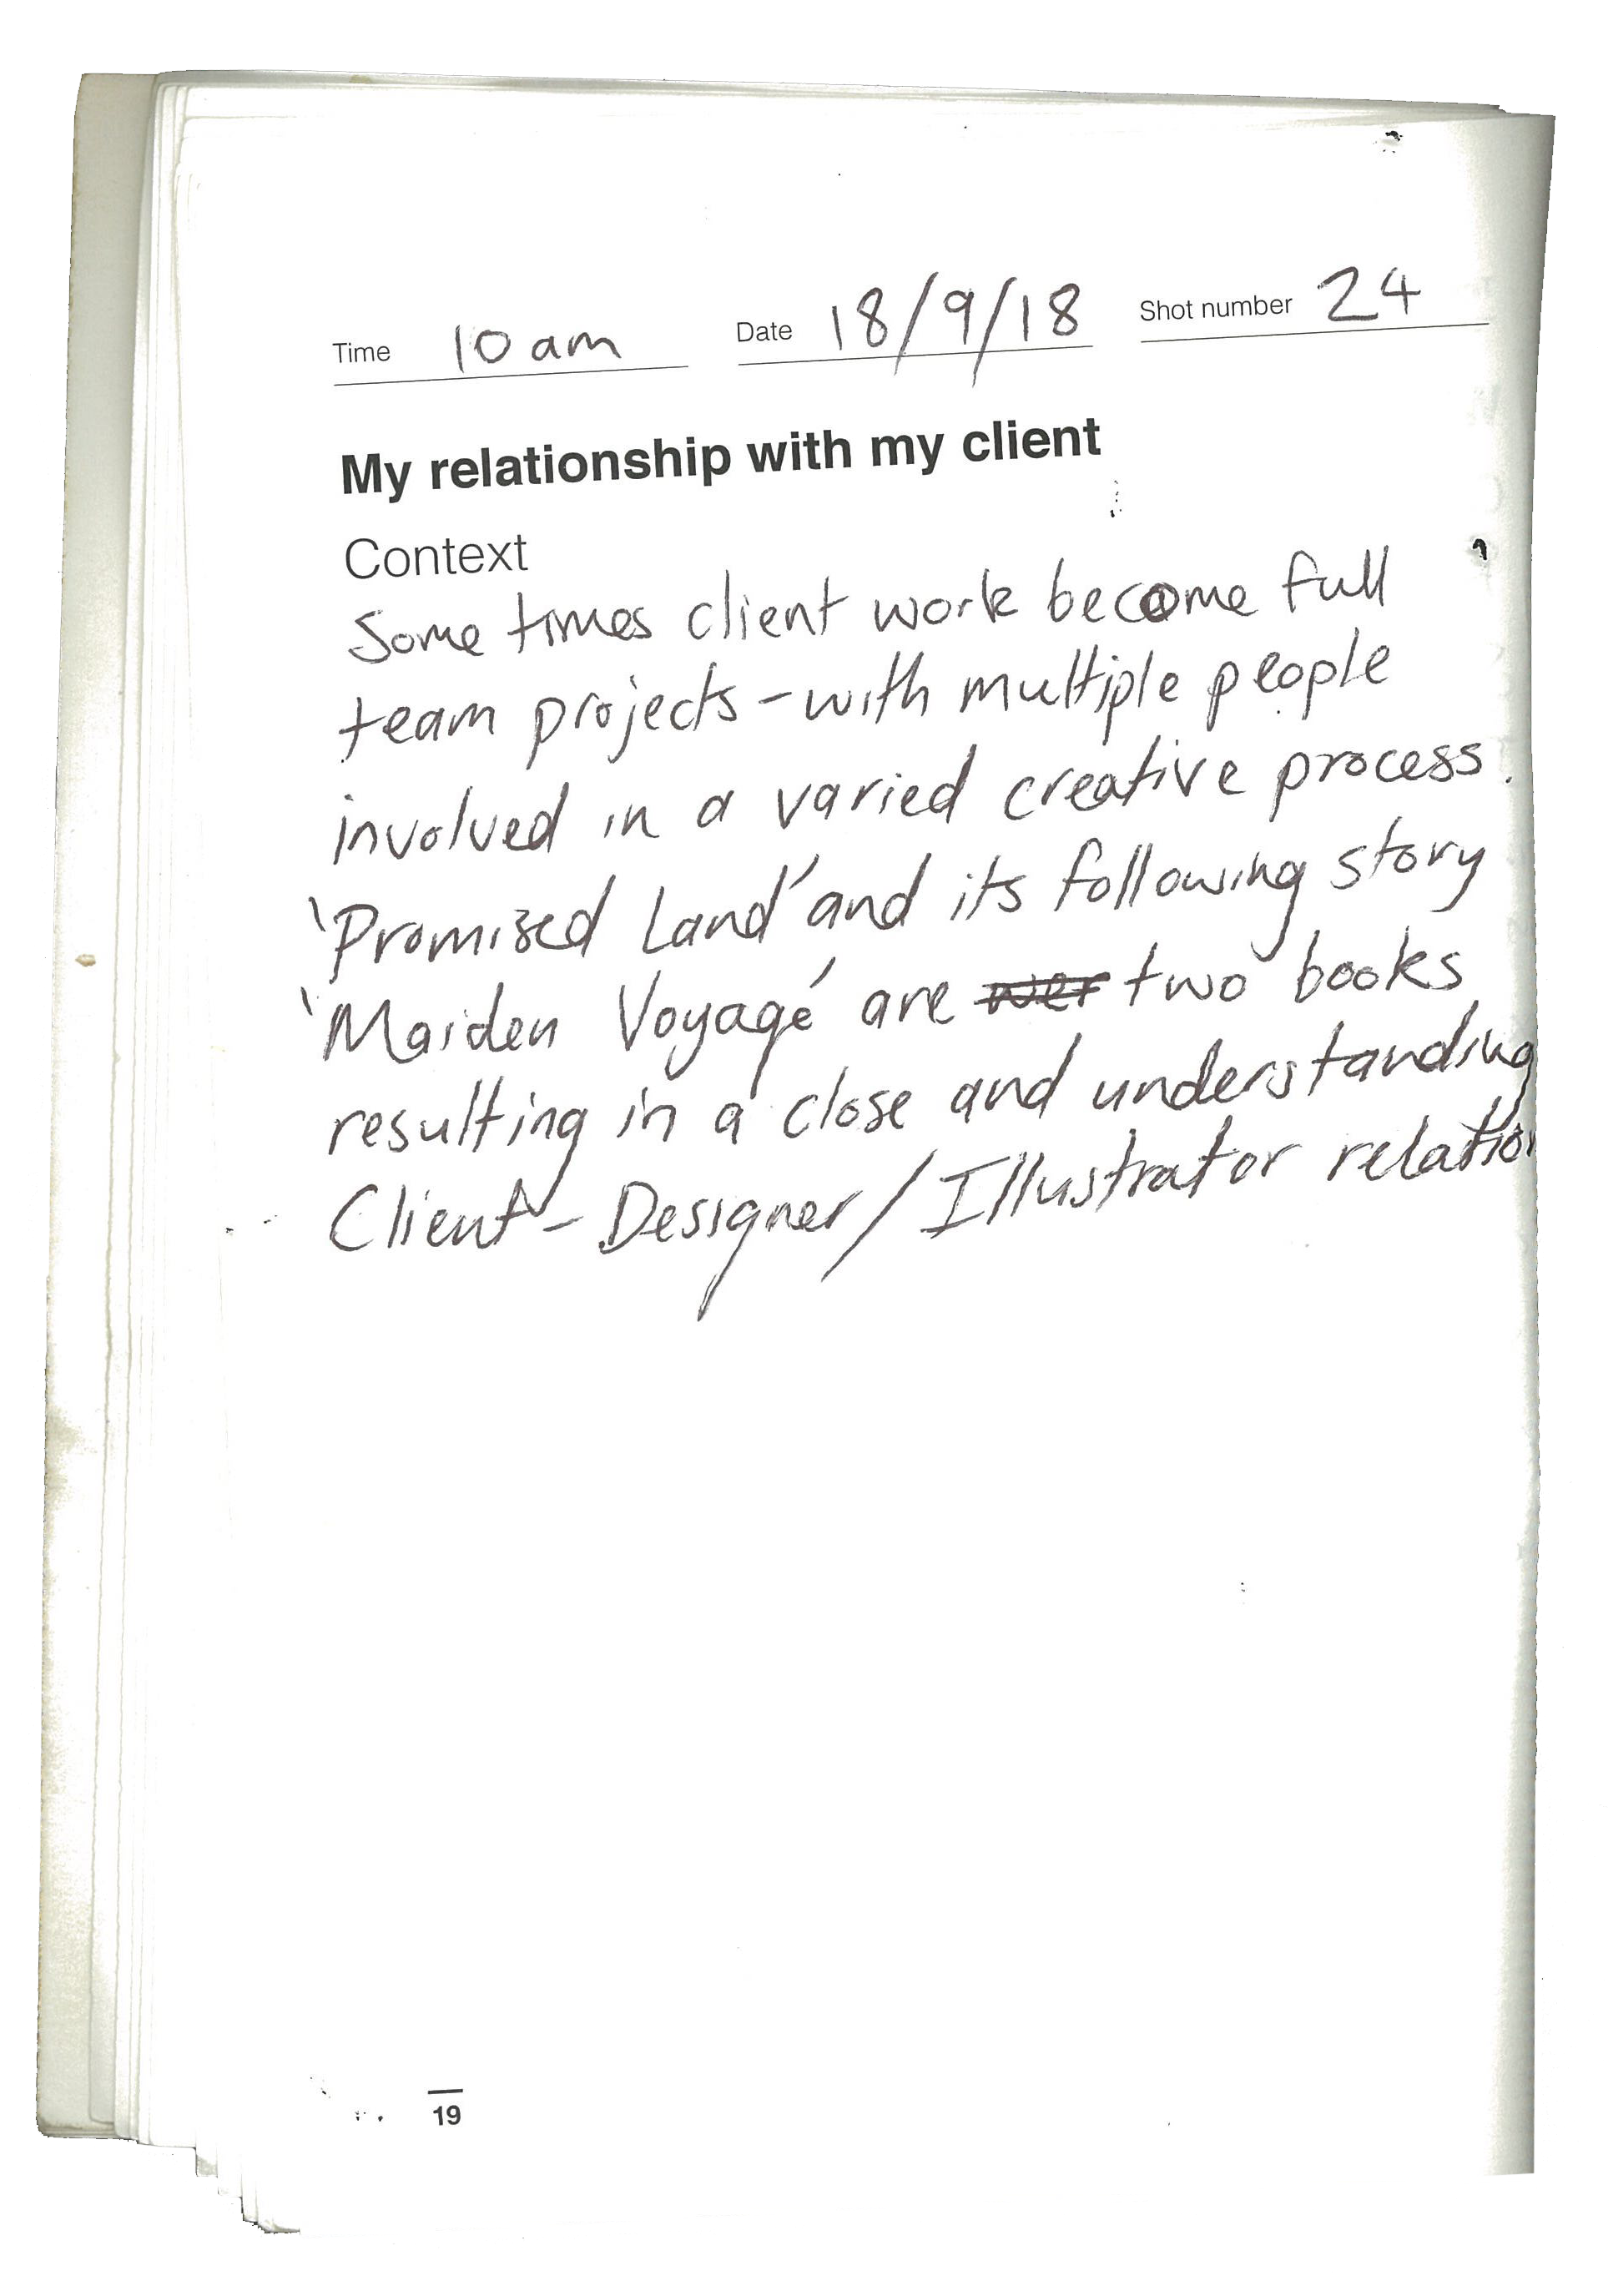 Time 10 am Date 18/9/18 Shot number 24
My relationship with my client
Context
Some times client work become full
team projects - with multiple people
involved in a varied creative process.
'Promised Land' and its following story
'Maiden Voyage' are two books
resulting in a close and understanding
Client - Designer / Illustrator relation
19